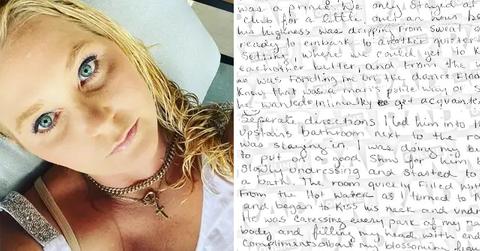 was a prince. We only stayed at
club for a little over an hour
his highness was dripping from sweat
ready to embark to another quieter
setting, where we could get to k
each other better and from the w
was fondling me on the dance floor
knew that was a man's polite way of s
he wanted intimately to get acquainte
Seperate directions I led him into th
upstairs bathroom next to the ro
was staying in I was doing my b
to put of a good show for him b
slowly undressing and started to
a bath. The room quickly filled with
from the Hot water as I turned to
and began to kiss his neck and undre
He was caressing every part of my na
body and filling my head with end
compliments about my blossoming